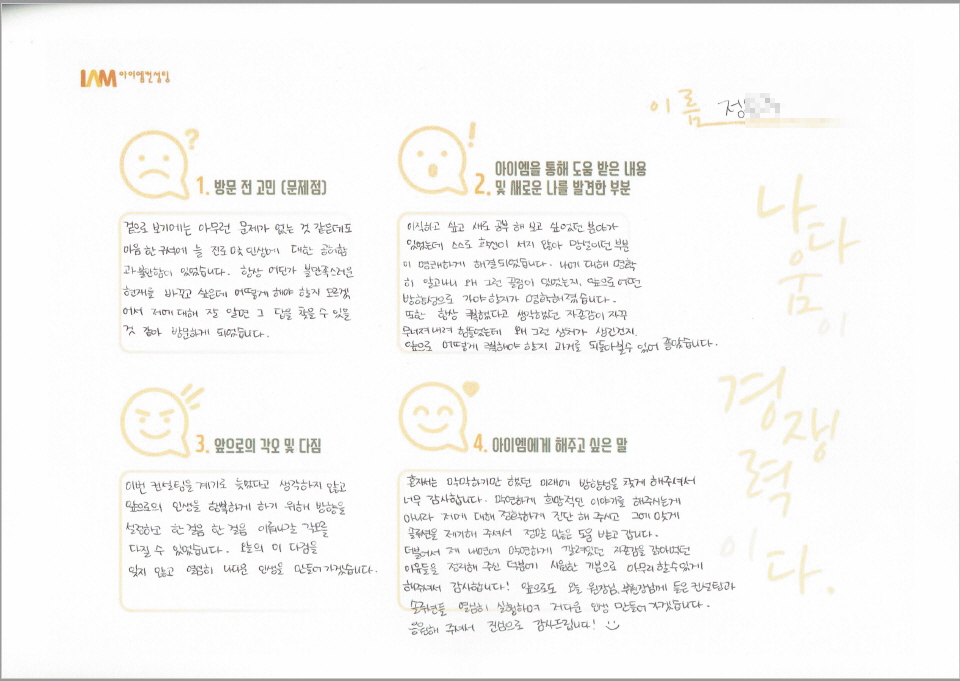 IAM 아이엠컨설팅
이름 정
1. 방문 전 고민 (문제점)
겉으로 보기에는 아무런 문제가 없는 것 같은데도
마음 한 구석에 늘 진로 및 인생에 대한 공허함
과 불만함이 있었습니다. 항상 어딘가 불만족스러운
현재를 바꾸고 싶은데 어떻게 해야 할지 모르겠
어서 저에 대해 잘 알면 그 답을 찾을 수 있을
것 같아 방문하게 되었습니다.
2. 아이엠을 통해 도움 받은 내용
및 새로운 나를 발견한 부분
이직하고 싶고 새로 공부 해 보고 싶었던 분야가
있었는데 스스로 확신이 서지 않아 망설이던 부분
이 명쾌하게 해결되었습니다. 나에 대해 명확
히 알고나니 왜 그런 끌림이 있었는지, 앞으로 어떤
방향성으로 가야 할지가 명확해졌습니다.
또한 항상 궈했다고 생각했던 자존감이 자꾸
무너져내려 힘들었는데 왜 그런 상처가 생긴건지,
앞으로 어떻게 해야 할지 과거를 되돌아볼수 있어 좋았습니다.
3. 앞으로의 각오 및 다짐
이번 컨설팅을 계기로 늦었다고 생각하지 않고
앞으로의 인생을 행복하게 하기 위해 방향을
설정하고 한 걸음 한 걸음 이뤄나갈 각오를
다질 수 있었습니다. 오늘의 이 다짐을
잊지 않고 열심히 나다운 인생을 만들어가겠습니다.
4. 아이엠에게 해주고 싶은 말
혼자서는 막막하기만 했던 미래에 방향성을 찾게 해주셔서
너무 감사합니다. 막연하게 희망적인 이야기를 해주시는게
아니라 저에 대해 정확하게 진단 해 주시고 그에 맞게
솔루션을 제시해 주셔서 정말 많은 도움 받고 갑니다.
더불어서 제 내면에 막연하게 깔려있던 자존감을 갉아먹던
이유들을 진단해 주신 덕분에 시원한 기분으로 마무리 할 수 있게
해주셔서 감사합니다! 앞으로도 오늘 원장님, 부원장님께 들은 컨설팅과
솔루션들 열심히 실행하여 저다운 인생 만들어 가겠습니다.
응원해 주셔서 진심으로 감사드립니다!
나다움이
경쟁력
이다.